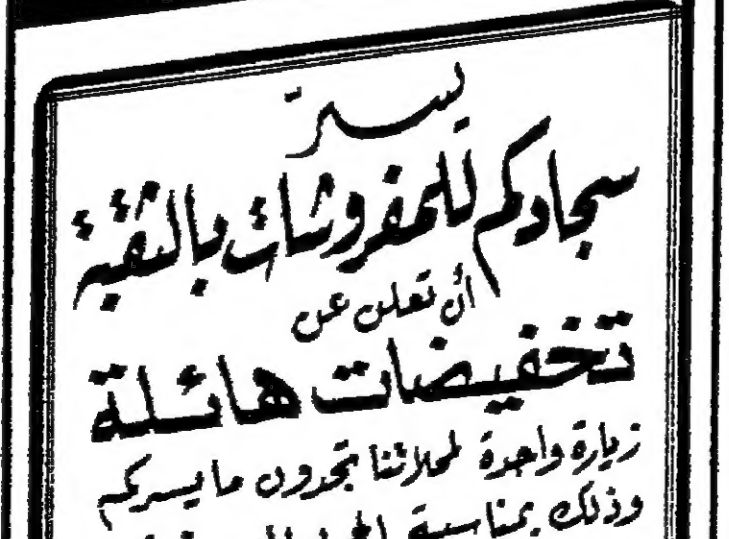 يسرّ
سجادكم للمفروشات بالثقبة
أن تعلن عن
تخفيضات هائلة
زيارة واحدة لمحلاتنا تجدون ما يسركم
وذلك بمناسبة